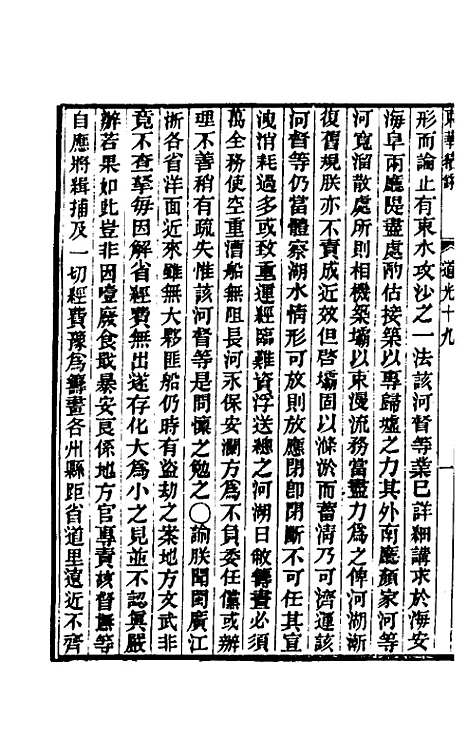 東華續錄 道光十九 一
形而論止有束水攻沙之一法該河督等業已詳細講求於海安
海阜兩廳隄盡處酌估接築以專歸墟之力其外南廳顏家河等
河寬溜散處所則相機築壩以束漫流務當盡力爲之俾河湖漸
復舊規朕亦不責成近效但啓壩固以滌淤而蓄淸乃可濟運該
河督等仍當體察湖水情形可放則放應閉卽閉斷不可任其宣
洩消耗過多或致重運經臨難資浮送總之河湖日敝籌畫必須
萬全務使空重漕船無阻長河永保安瀾方爲不負委任儻或辦
理不善稍有疏失惟該河督等是問懍之勉之○諭朕聞閩廣江
浙各省洋面近來雖無大夥匪船仍時有盜劫之案地方文武非
竟不查拏每因解省經費無出遂存化大爲小之見並不認眞嚴
辦若果如此豈非因噎廢食戢暴安良係地方官專責該督撫等
自應將緝捕及一切經費豫爲籌畫各州縣距省道里遠近不齊